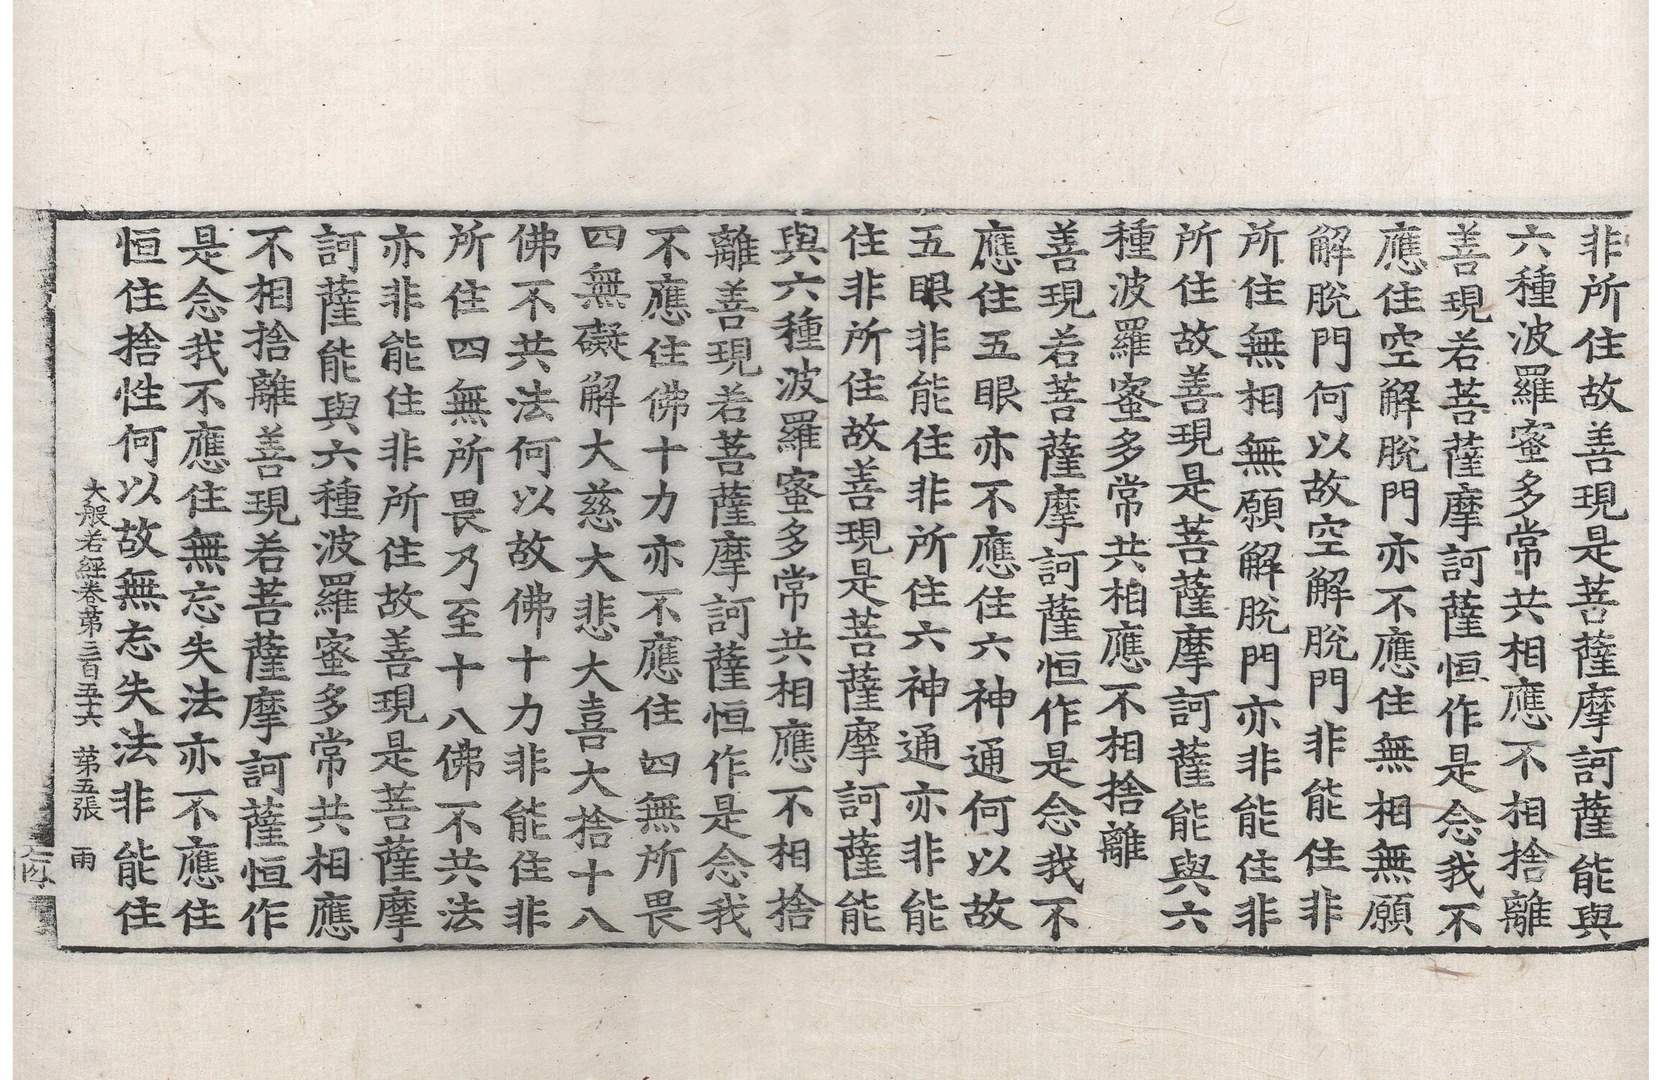 非所住故善現是菩薩摩訶薩能與
六種波羅蜜多常共相應不相捨離
善現若菩薩摩訶薩恒作是念我不
應住空解脫門亦不應住無相無願
解脫門何以故空解脫門非能住非
所住無相無願解脫門亦非能住非
所住故善現是菩薩摩訶薩能與六
種波羅蜜多常共相應不相捨離
善現若菩薩摩訶薩恒作是念我不
應住五眼亦不應住六神通何以故
五眼非能住非所住六神通亦非能
住非所住故善現是菩薩摩訶薩能
與六種波羅蜜多常共相應不相捨
離善現若菩薩摩訶薩恒作是念我
不應住佛十力亦不應住四無所畏
四無礙解大慈大悲大喜大捨十八
佛不共法何以故佛十力非能住非
所住四無所畏乃至十八佛不共法
亦非能住非所住故善現是菩薩摩
訶薩能與六種波羅蜜多常共相應
不相捨離善現若菩薩摩訶薩恒作
是念我不應住無忘失法亦不應住
恒住捨性何以故無忘失法非能住
大般若經卷第三百五十六 第五張 雨